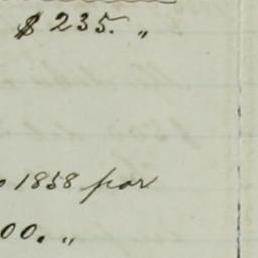 $ 235. "
1858 por
00. "